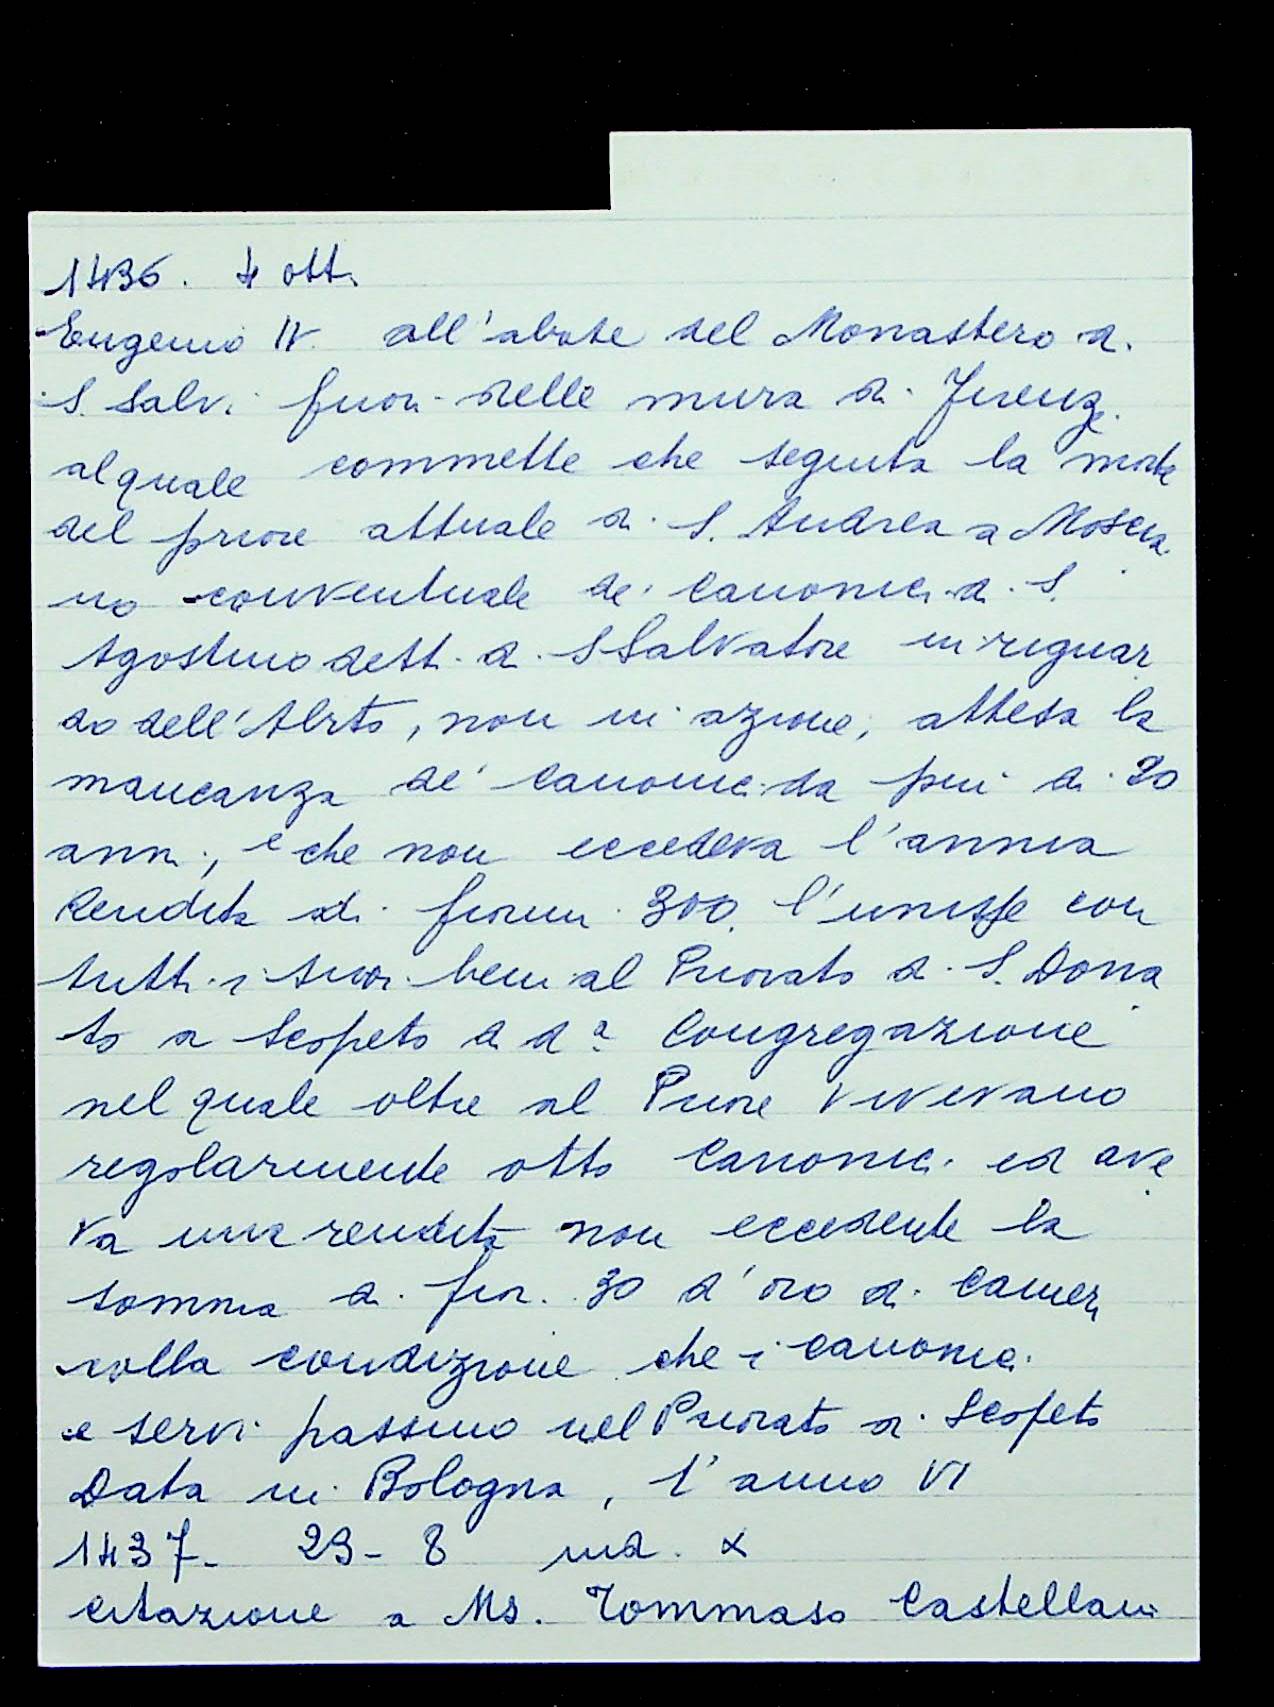 1436. 4 ott.
Eugenio IV. all'abate del Monastero di
S. Salvi fuori delle mura di Firenze
al quale commette che seguita la morte
del priore attuale di S. Andrea a Moscia
no conventuale de' Canonici di S.
Agostino detti di S Salvatore in riguar
do dell'Abito, non in azione, attesa la
mancanza de' Canonici da piu di 20
anni, e che non eccedeva l'annua
Rendita di fiorini 300. l'unisse con
tutti i suoi beni al Priorato di S. Dona
to a Scopeto di da Congregazione
nel quale oltre al Priore vivevano
regolarmente otto Canonici ed ave
va una rendita non eccedente la
somma di fior. 30 d'oro di Camera
colla condizione che i canonici
e servi passino nel Priorato di Scopeto
Data in Bologna, l'anno VI
1437- 29-8 ind. X
Citazione a Ms. Tommaso Castellani